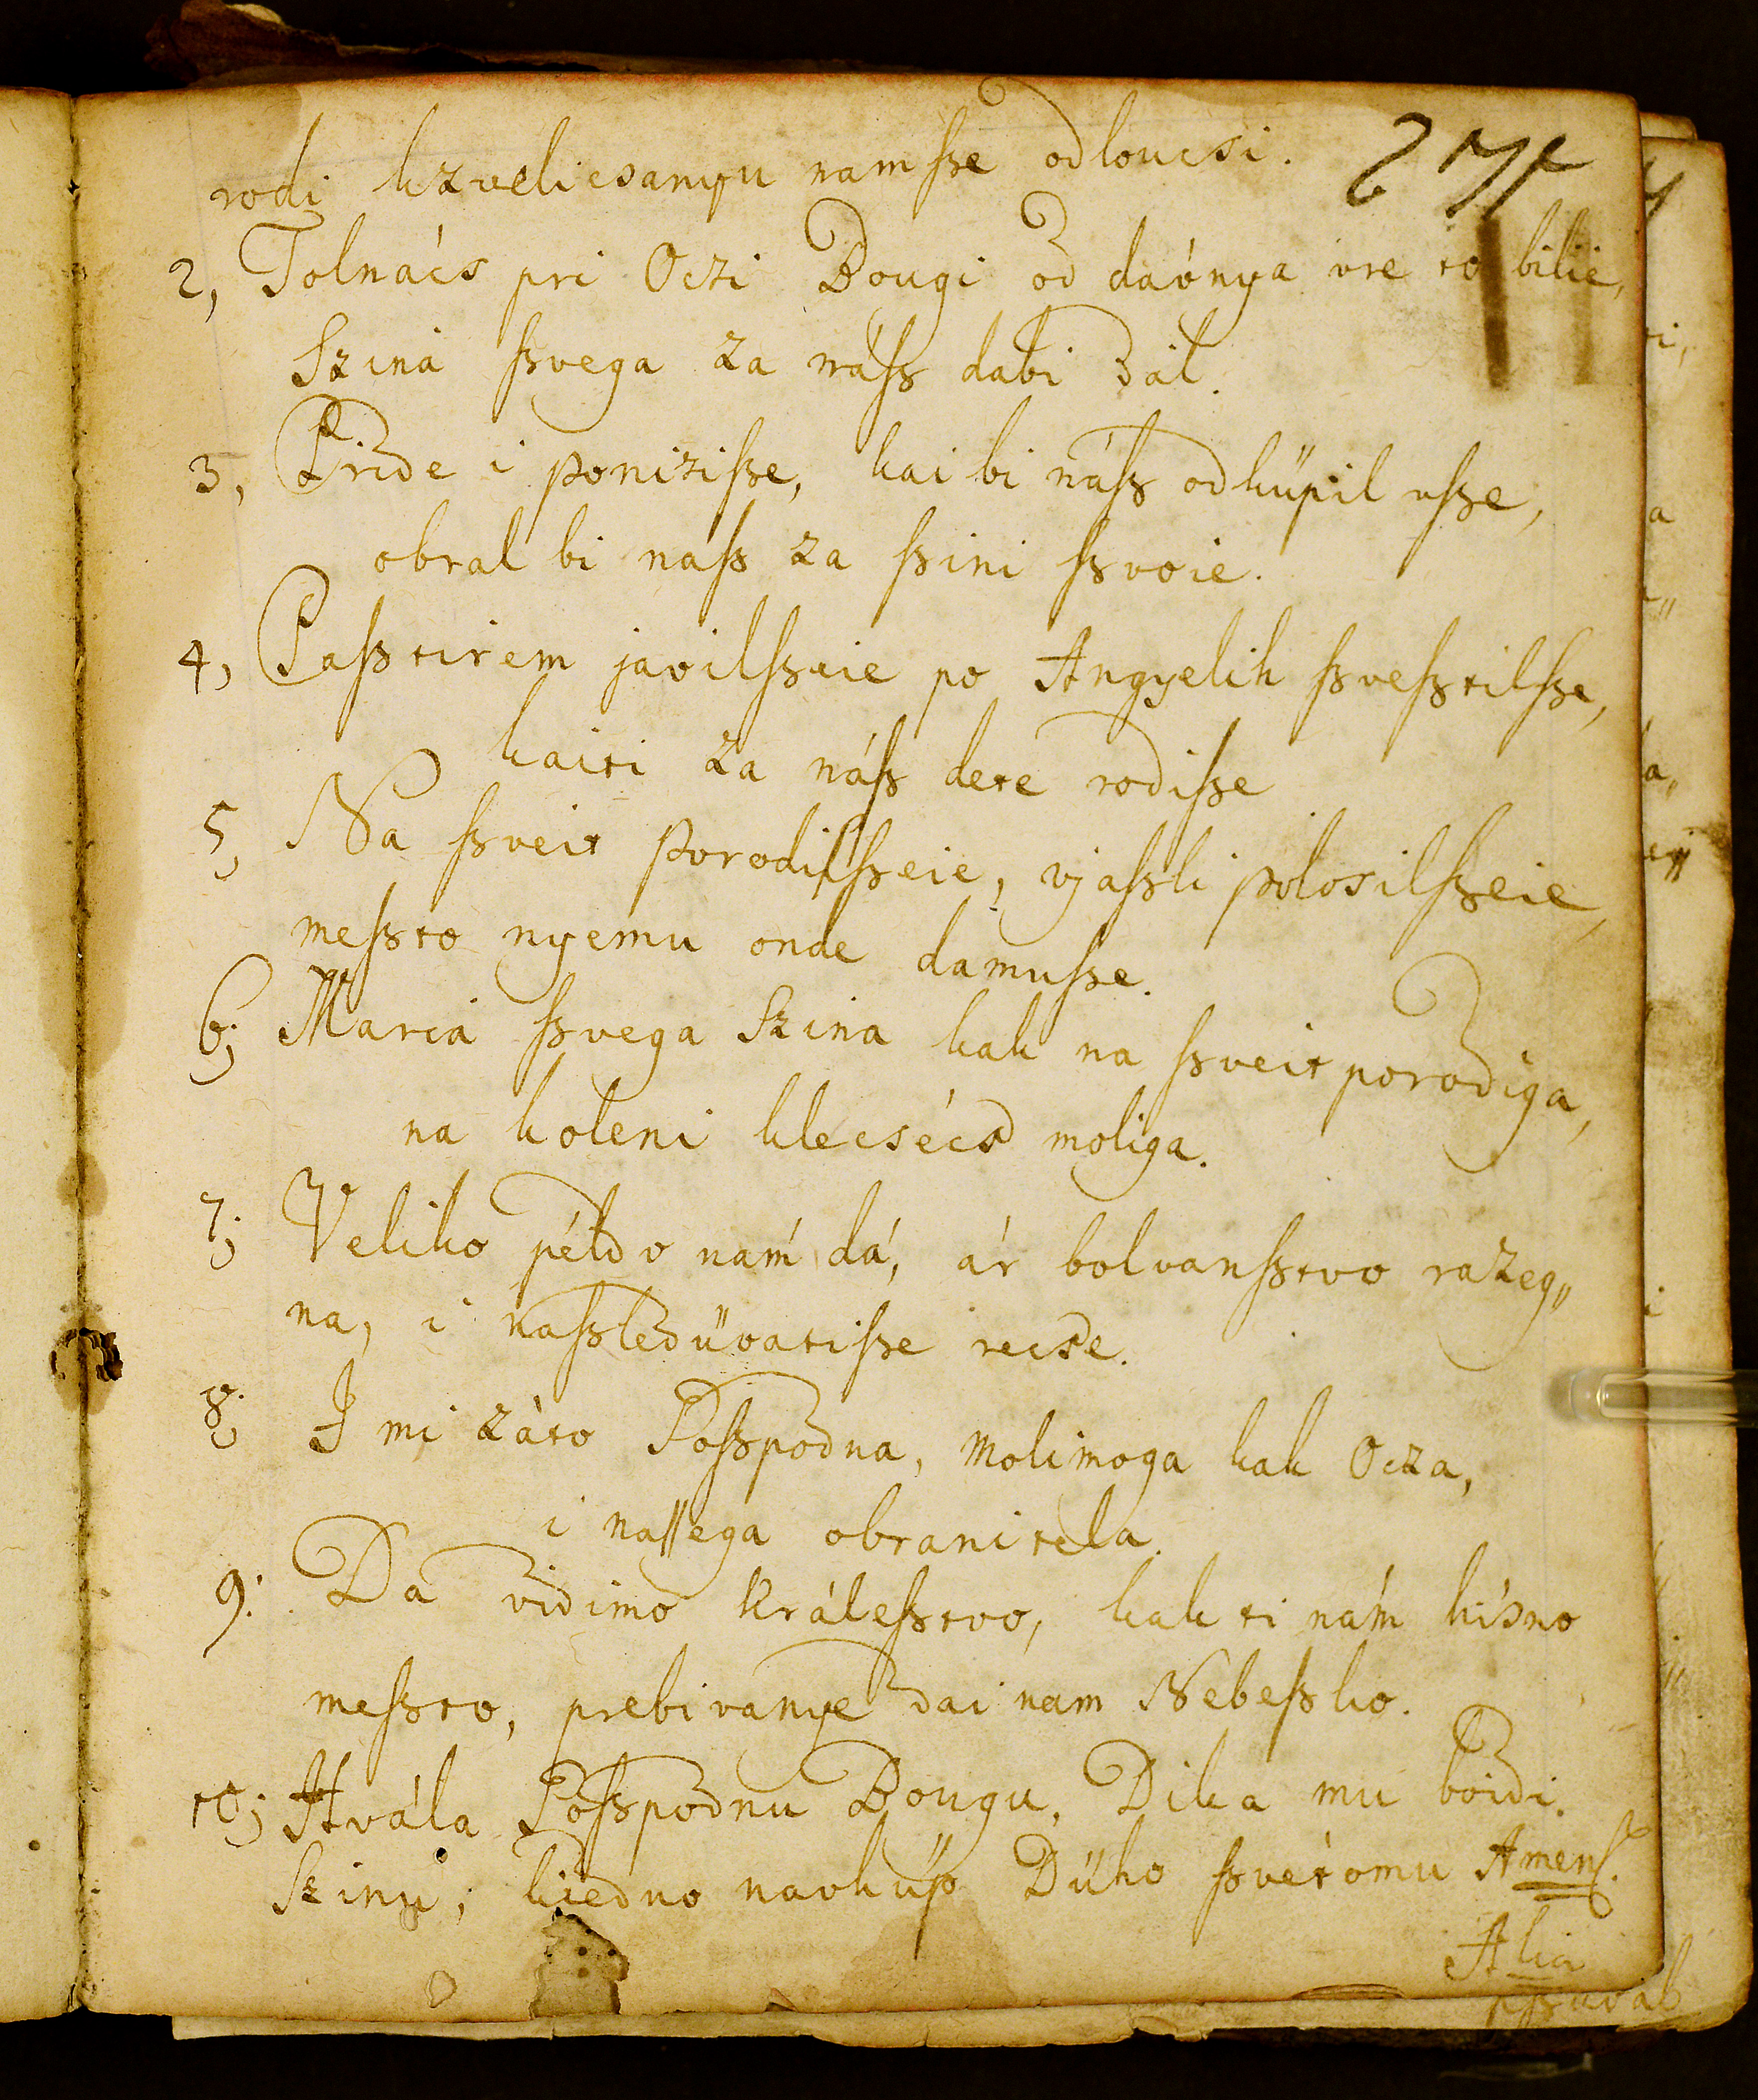 rodi kzvelicsanyu nam ſze odloucsi.
2, Tolnács pri Oczi Bougi od davnya vre to bilie,
Szina ſzvega za náſz dabi dal.
3, Pride i poniziſze, kai bi náſz odküpil vſze,
obral bi naſz za ſzini ſzvoie.
4, Paſztirem javilſzeie po Angyelih ſzveſztilſze,
kaiti za náſz dete rodiſze
5, Na ſzveit porodilſzeie, vjaſzli polosilſzeie,
meſzto nyemu onde damuſze.
6; Maria ſzvega Szina kak na ſzveit porodiga,
na koleni klecsécs moliga.
7; Veliko példo nám dá, ár bolvanſztvo razeg„
na, i naſzledüvatiſze recse.
8; I mi záto Goſzpodna, molimoga kak Ocza,
i naſſega obranitela.
9: Da vidimo Králeſztvo, kak ti nám hisno
meſzto, prebivanye dai nam Nebeſzko.
10; Hvála Goſzpodnu Bougu, Dika mu boidi.
Szinu, kiedno navküp Dűho ſzvétomu Amen.
Alia